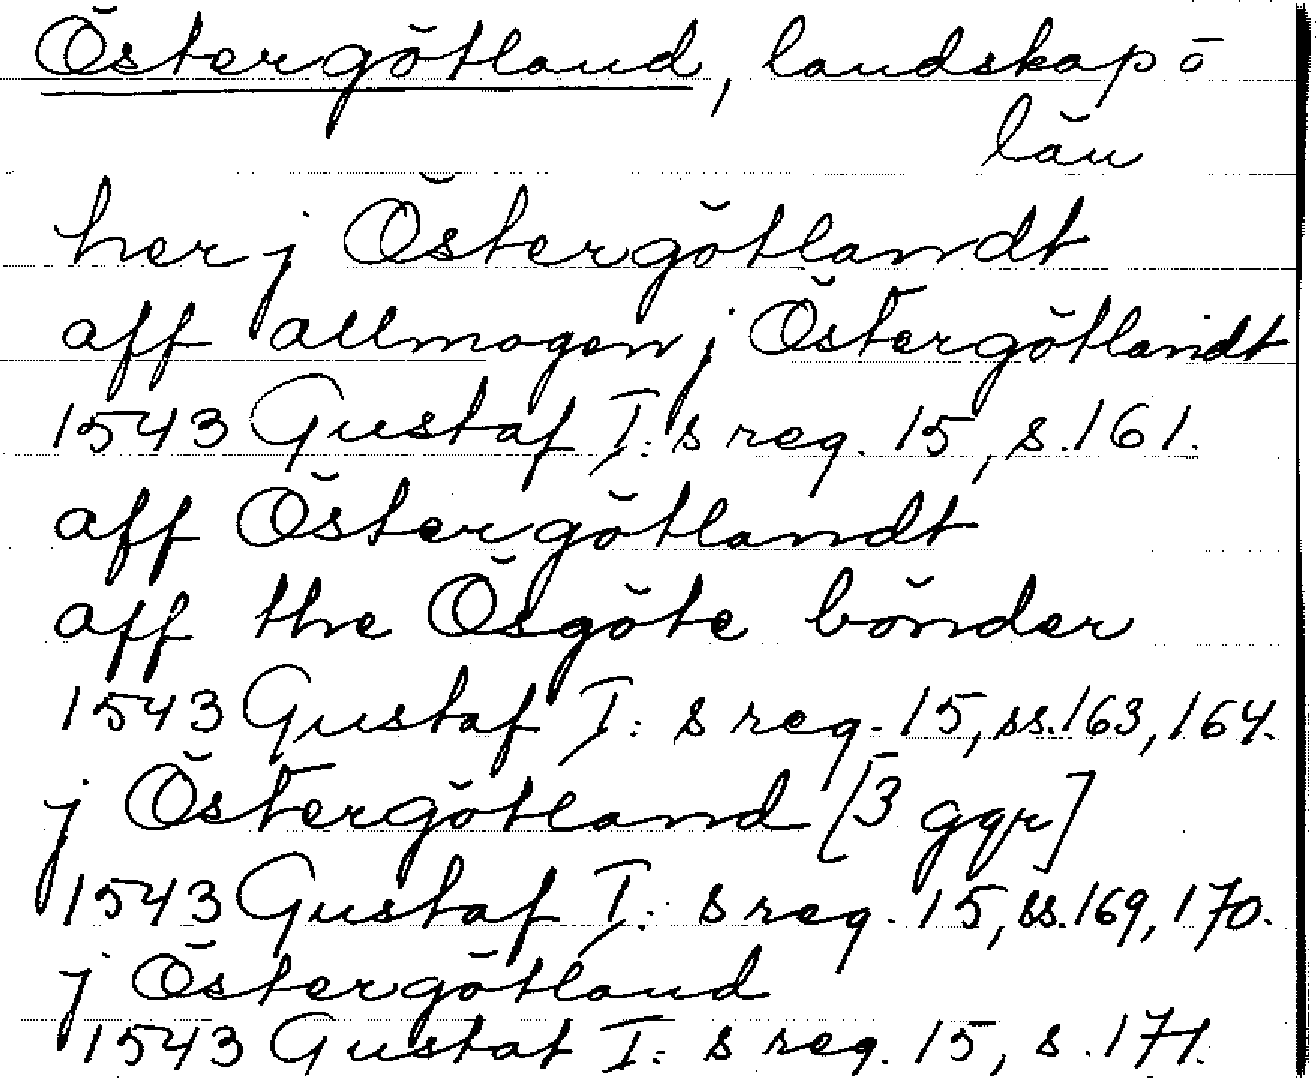 Östergötland, landskap o
län
her j Östergötlandt
aff allmogen j Östergötlandt
1543 Gustaf I: s reg. 15, s. 161.
aff Östergötlandt
aff the Ösgöte bönder
1543 Gustaf I: s reg. 15, ss. 163, 164.
j Östergötland [3 ggr]
1543 Gustaf I: s reg. 15, ss. 169, 170.
j Östergötland
1543 Gustaf I: s reg. 15, s. 171.